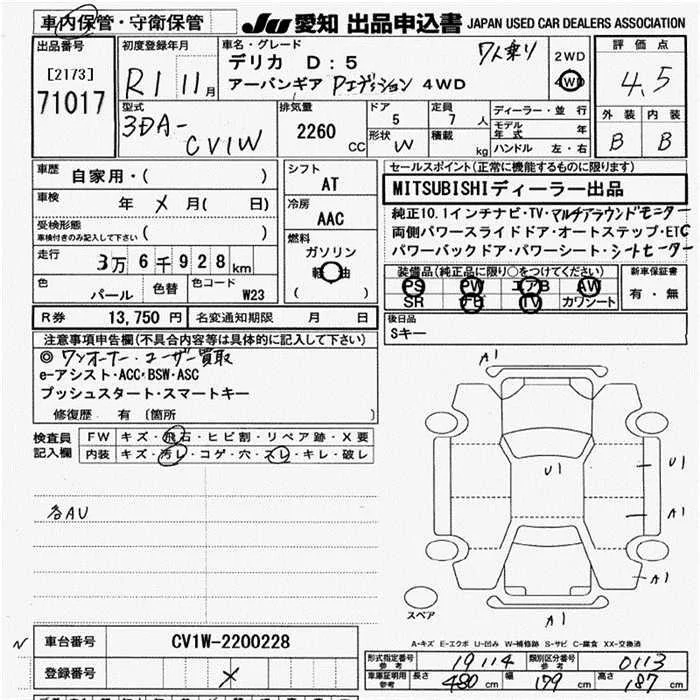 車内保管・守衛保管
JU 愛知 出品申込書 JAPAN USED CAR DEALERS ASSOCIATION
出品番号
[2173]
71017
初度登録年月
R1 11月
車名・グレード
デリカ D:5
7人乗り
アーバンギア Pエディション 4WD
2WD
4WD
評価点
4.5
外装 内装
B B
型式
3DA-CV1W
排気量
2260 CC
ドア
5
形状
W
定員
7 人
積載
kg
ディーラー・並行
モデル年式 年
ハンドル 左・右
車歴
自家用・( )
車検
年 メ 月( 日)
受検形態
車検付きのみ記入して下さい ( )
走行
3万6千928km
色
パール
色替
色コード
W23
シフト
AT
冷房
AAC
燃料
ガソリン
軽油
( )
セールスポイント(正常に機能するものに限ります)
MITSUBISHIディーラー出品
純正10.1インチナビ・TV・マルチアラウンドモニター
両側パワースライドドア・オートステップ・ETC
パワーバックドア・パワーシート・シートヒーター
装備品(純正品に限り○をつけてください)
PS PW エアB AW
SR ナビ TV カワシート
新車保証書
有・無
R券 13,750円 名変通知期限 月 日
後日品
Sキー
注意事項申告欄(不具合内容等は具体的に記入して下さい)
◎ワンオーナー・ユーザー買取
e-アシスト・ACC・BSW・ASC
プッシュスタート・スマートキー
修復歴 有 〔箇所 〕
検査員記入欄
FW キズ・飛石・ヒビ割・リペア跡・X要
内装 キズ・汚レ・コゲ・穴・スレ・キレ・破レ
各AU
A1
U1
U1
A1
A1
A1
スペア
A-キズ E-エクボ U-凹み W-補修跡 S-サビ C-腐食 XX-交換済
N
車台番号 CV1W-2200228
登録番号 メ
形式指定番号 参考 19114
類別区分番号 参考 0113
車庫証明用 参考 長さ 480cm 幅 179cm 高さ 187cm